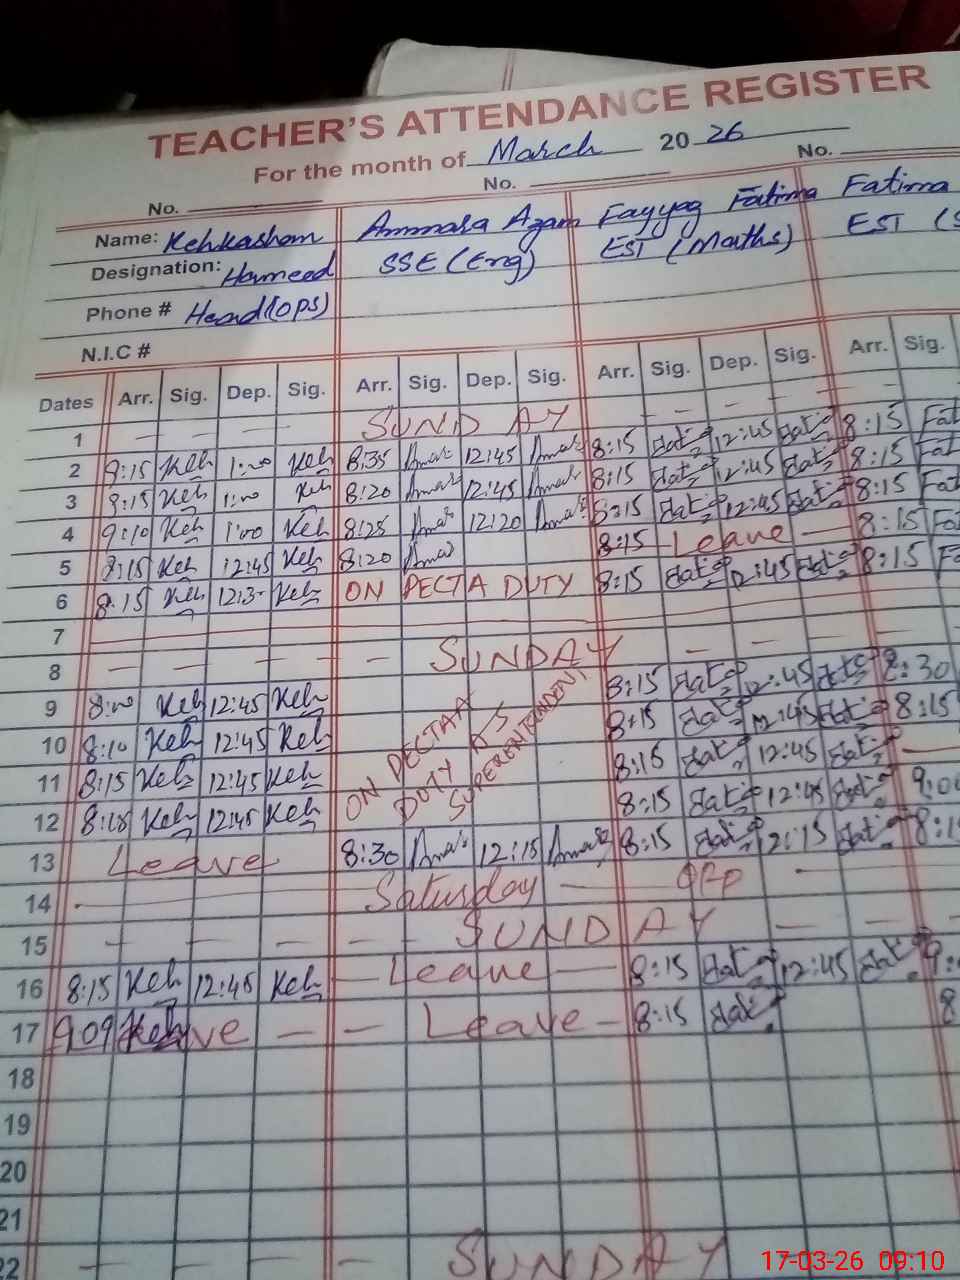 TEACHER'S ATTENDANCE REGISTER
For the month of March 20 26
No. No. No.
Name: Kehkashan Ammara Azam Fayyaz Fatima Fatima
Designation: Hameed SSE (Eng) EST (Maths) EST (S
Phone # Head (ops)
N.I.C #
Dates Arr. Sig. Dep. Sig. Arr. Sig. Dep. Sig. Arr. Sig. Dep. Sig. Arr. Sig.
1 — — — SUNDAY — — — — — —
2 8:15 Keh 1:00 Keh 8:35 Amar 12:45 Amar 8:15 Fat 12:45 Fat 8:15 Fat
3 8:15 Keh 1:00 Keh 8:20 Amar 12:45 Amar 8:15 Fat 12:45 Fat 8:15 Fat
4 9:10 Keh 1:00 Keh 8:25 Amar 12:20 Amar 8:15 Fat 12:45 Fat 8:15 Fat
5 8:15 Keh 12:45 Keh 8:20 Amar 8:15 Leave — 8:15 Fat
6 8:15 Keh 12:3 Keh ON PECTA DUTY 8:15 Fat 12:45 Fat 8:15 Fa
7
8 — — — — — SUNDAY — — — —
9 8:00 Keh 12:45 Keh 8:15 Fat 12:45 Fat 8:30
10 8:10 Keh 12:45 Keh ON PECTAA 8:15 Fat 12:45 Fat 8:15
11 8:15 Keh 12:45 Keh DUTY AS 8:15 Fat 12:45 Fat —
12 8:18 Keh 12:45 Keh SUPERENTENDENT 8:15 Fat 12:45 Fat 9:00
13 Leave 8:30 Amar 12:15 Amar 8:15 Fat 12:15 Fat 8:1
14 Saturday — OFF —
15 — — — — — SUNDAY — — —
16 8:15 Keh 12:45 Keh — Leave — 8:15 Fat 12:45 Fat 9:
17 9:09 Keh ve — — Leave — 8:15 Fat 8
18
19
20
21
22 — — SUNDAY
17-03-26 09:10